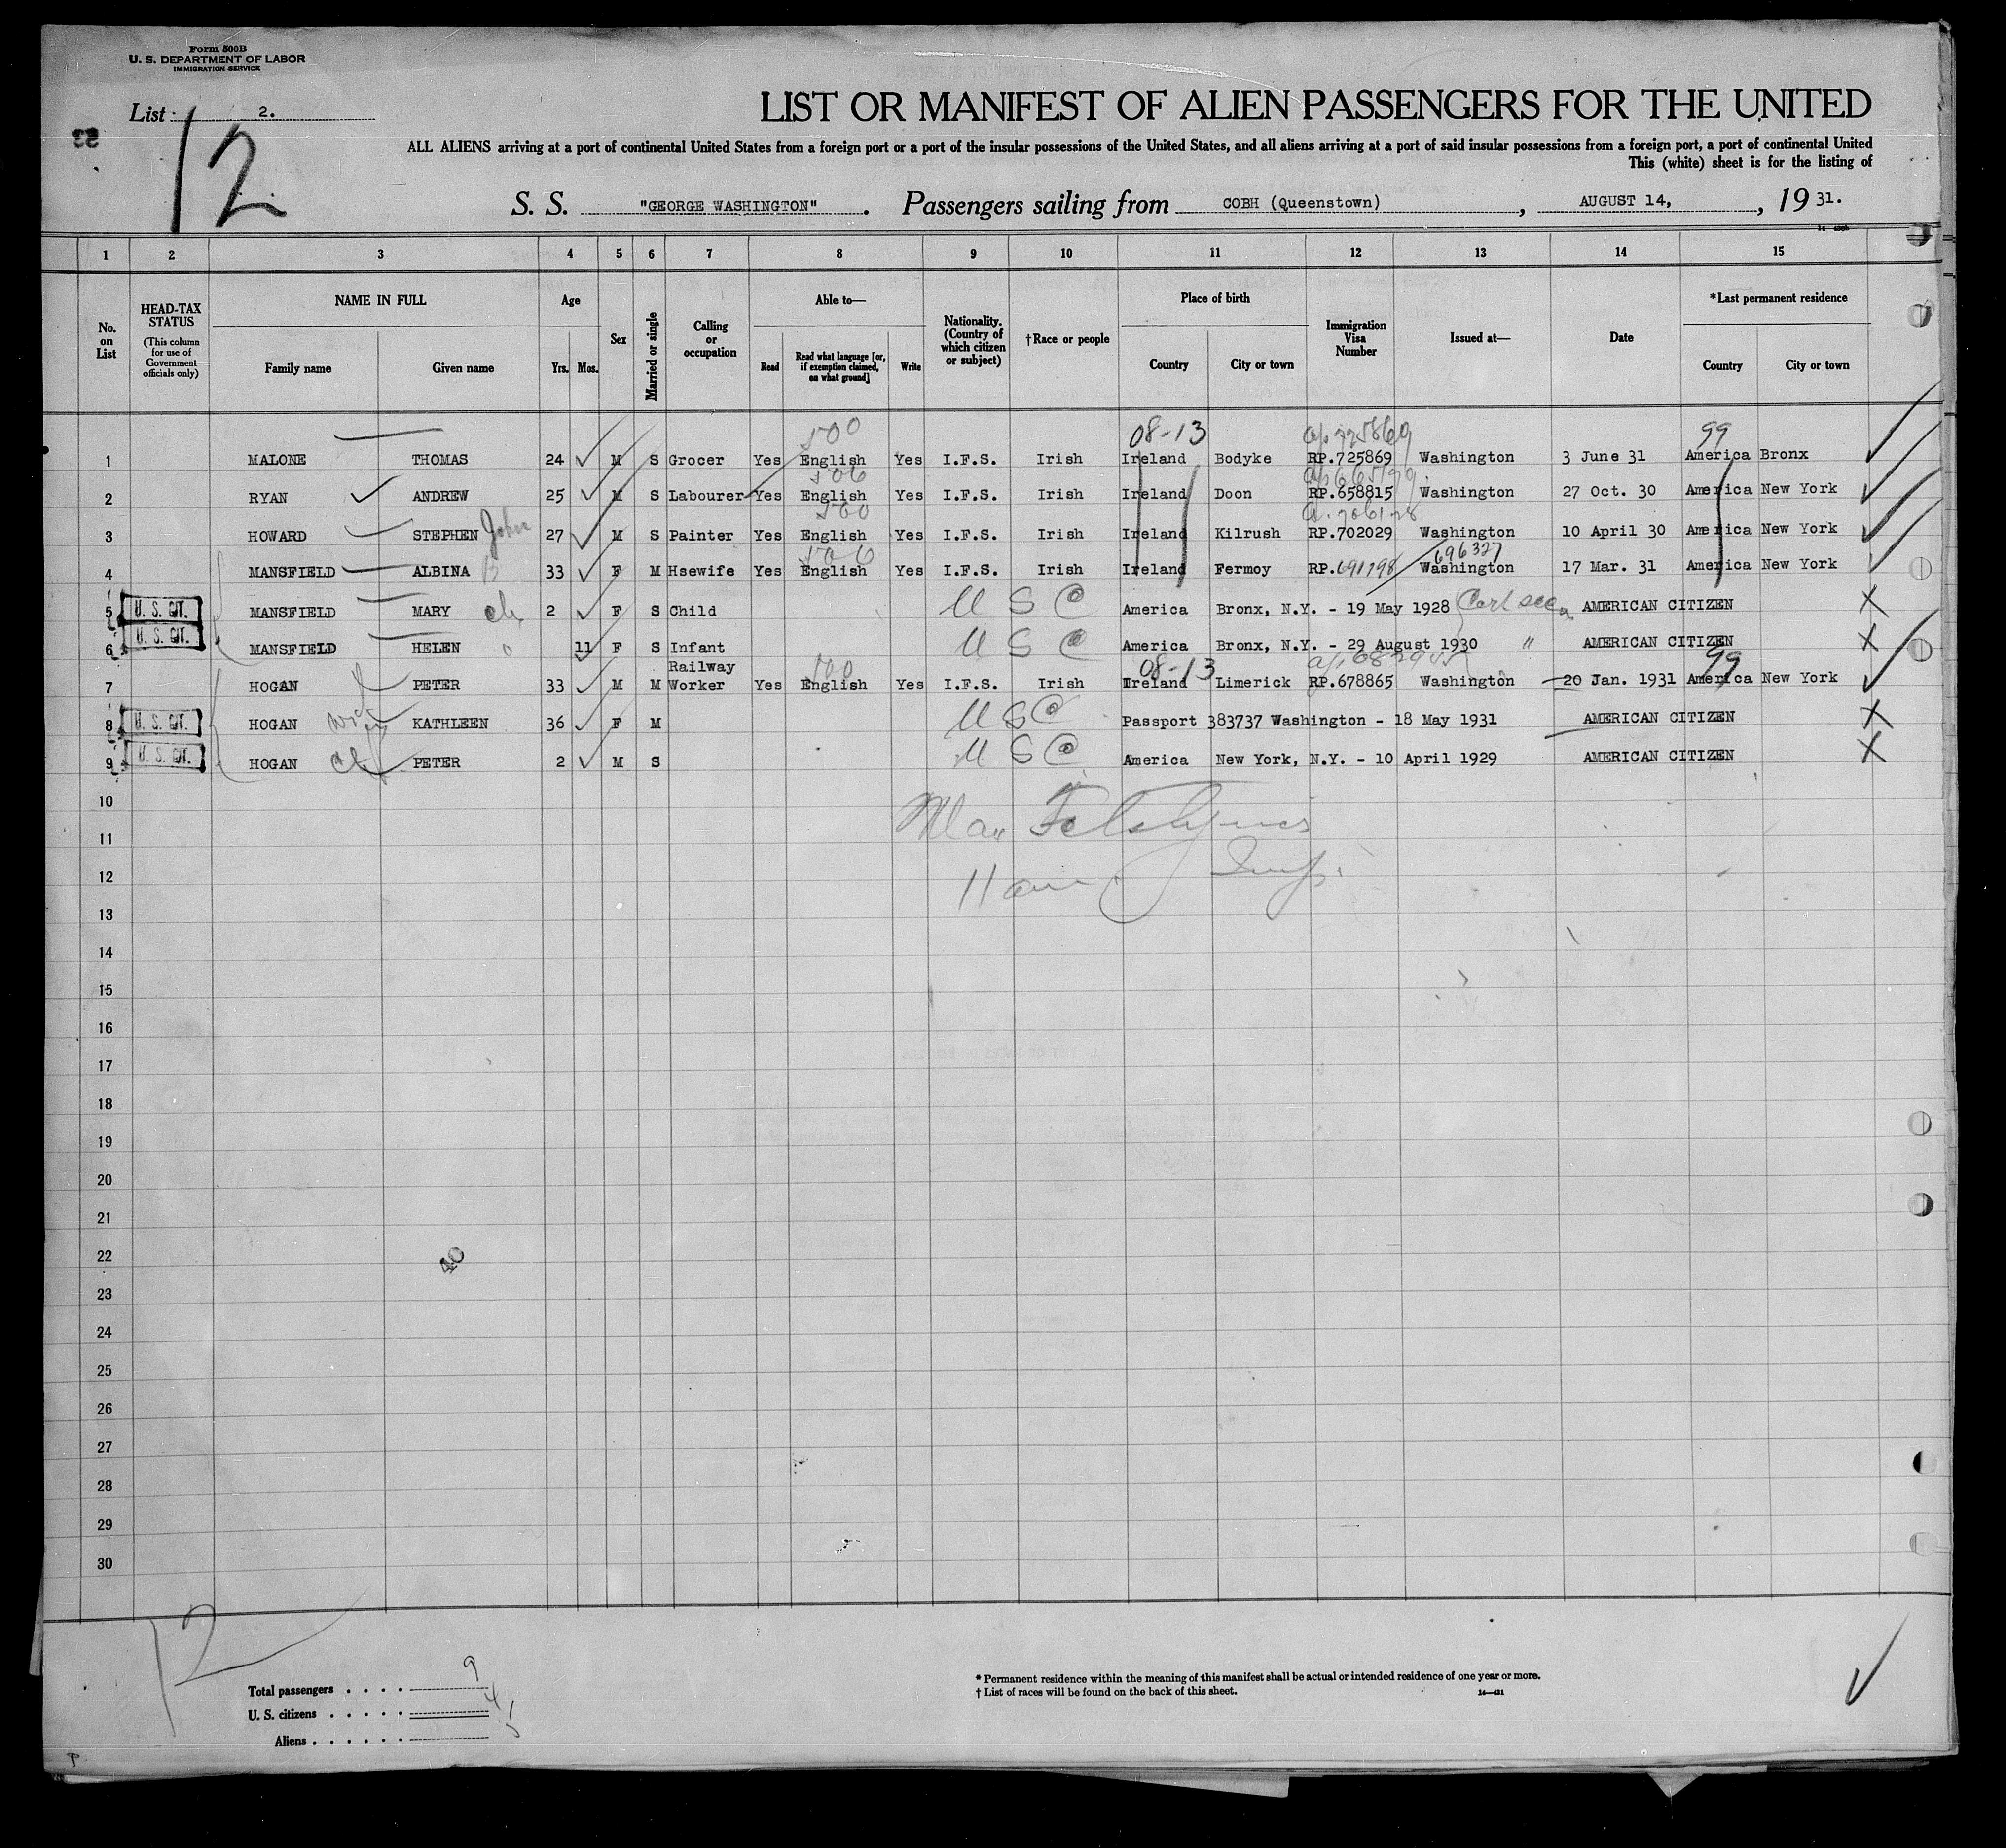 Form 500B
U. S. DEPARTMENT OF LABOR
IMMIGRATION SERVICE
List 2.
12
LIST OR MANIFEST OF ALIEN PASSENGERS FOR THE UNITED
ALL ALIENS arriving at a port of continental United States from a foreign port or a port of the insular possessions of the United States, and all aliens arriving at a port of said insular possessions from a foreign port, a port of continental United
This (white) sheet is for the listing of
S. S. "GEORGE WASHINGTON". Passengers sailing from COBH (Queenstown), AUGUST 14, , 19 31.
1 2 3 4 5 6 7 8 9 10 11 12 13 14 15
No. on List
HEAD-TAX STATUS (This column for use of Government officials only)
NAME IN FULL
Family name Given name
Age
Yrs. Mos.
Sex
Married or single
Calling or occupation
Able to—
Read Read what language [or, if exemption claimed, on what ground] Write
Nationality. (Country of which citizen or subject)
†Race or people
Place of birth
Country City or town
Immigration Visa Number
Issued at—
Date
*Last permanent residence
Country City or town
500 08-13 99
1 MALONE THOMAS 24 M S Grocer Yes English Yes I.F.S. Irish Ireland Bodyke RP.725869 Washington 3 June 31 America Bronx
500
2 RYAN ANDREW 25 M S Labourer Yes English Yes I.F.S. Irish Ireland Doon RP.658815 Washington 27 Oct. 30 America New York
500
3 HOWARD STEPHEN John 27 M S Painter Yes English Yes I.F.S. Irish Ireland Kilrush RP.702029 Washington 10 April 30 America New York
500 696327
4 MANSFIELD ALBINA B 33 F M Hsewife Yes English Yes I.F.S. Irish Ireland Fermoy RP.691798 Washington 17 Mar. 31 America New York
5 U. S. CIT. MANSFIELD MARY ch 2 F S Child U S C America Bronx, N.Y. - 19 May 1928 AMERICAN CITIZEN X
6 U. S. CIT. MANSFIELD HELEN 11 F S Infant U S C America Bronx, N.Y. - 29 August 1930 " AMERICAN CITIZEN X
500 08-13 99
7 HOGAN PETER 33 M M Railway Worker Yes English Yes I.F.S. Irish Ireland Limerick RP.678865 Washington 20 Jan. 1931 America New York
8 U. S. CIT. HOGAN wife KATHLEEN 36 F M U S C Passport 383737 Washington - 18 May 1931 AMERICAN CITIZEN X
9 U. S. CIT. HOGAN ch PETER 2 M S U S C America New York, N.Y. - 10 April 1929 AMERICAN CITIZEN X
10
11
12
Insp.
13
14
15
16
17
18
19
20
21
22
40
23
24
25
26
27
28
29
30
12
Total passengers . . . . 9
U. S. citizens . . . . . 4
Aliens . . . . . . 5
* Permanent residence within the meaning of this manifest shall be actual or intended residence of one year or more.
† List of races will be found on the back of this sheet.